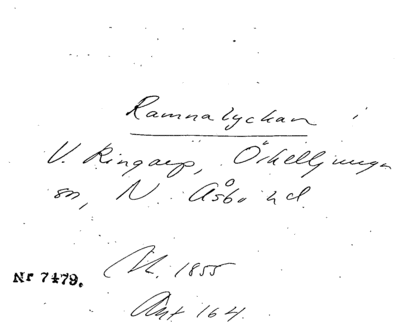 Ramnalyckan i
V. Ringarp, Örkelljunga
sn, N. Åsbo hd.
Nr 7479.
M. 1855
Ant 164.